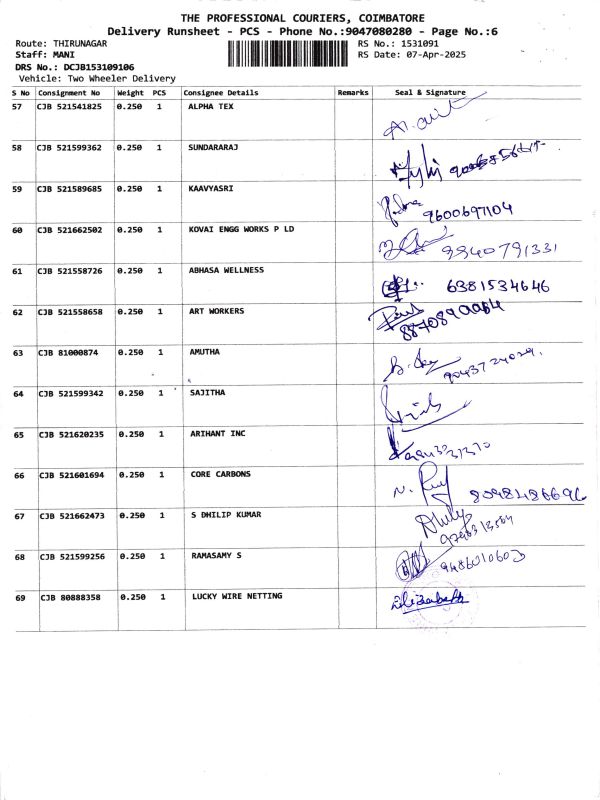 THE PROFESSIONAL COURIERS, COIMBATORE
Delivery Runsheet - PCS - Phone No.:9047080280 - Page No.:6
Route: THIRUNAGAR RS No.: 1531091
Staff: MANI RS Date: 07-Apr-2025
DRS No.: DCJB153109106
Vehicle: Two Wheeler Delivery
S No Consignment No Weight PCS Consignee Details Remarks Seal & Signature
57 CJB 521541825 0.250 1 ALPHA TEX
58 CJB 521599362 0.250 1 SUNDARARAJ
59 CJB 521589685 0.250 1 KAAVYASRI
9600697104
60 CJB 521662502 0.250 1 KOVAI ENGG WORKS P LD
9940791331
61 CJB 521558726 0.250 1 ABHASA WELLNESS
6381534646
62 CJB 521558658 0.250 1 ART WORKERS
63 CJB 81000874 0.250 1 AMUTHA
64 CJB 521599342 0.250 1 SAJITHA
65 CJB 521620235 0.250 1 ARIHANT INC
66 CJB 521601694 0.250 1 CORE CARBONS
8098486696
67 CJB 521662473 0.250 1 S DHILIP KUMAR
68 CJB 521599256 0.250 1 RAMASAMY S
9486010603
69 CJB 80888358 0.250 1 LUCKY WIRE NETTING